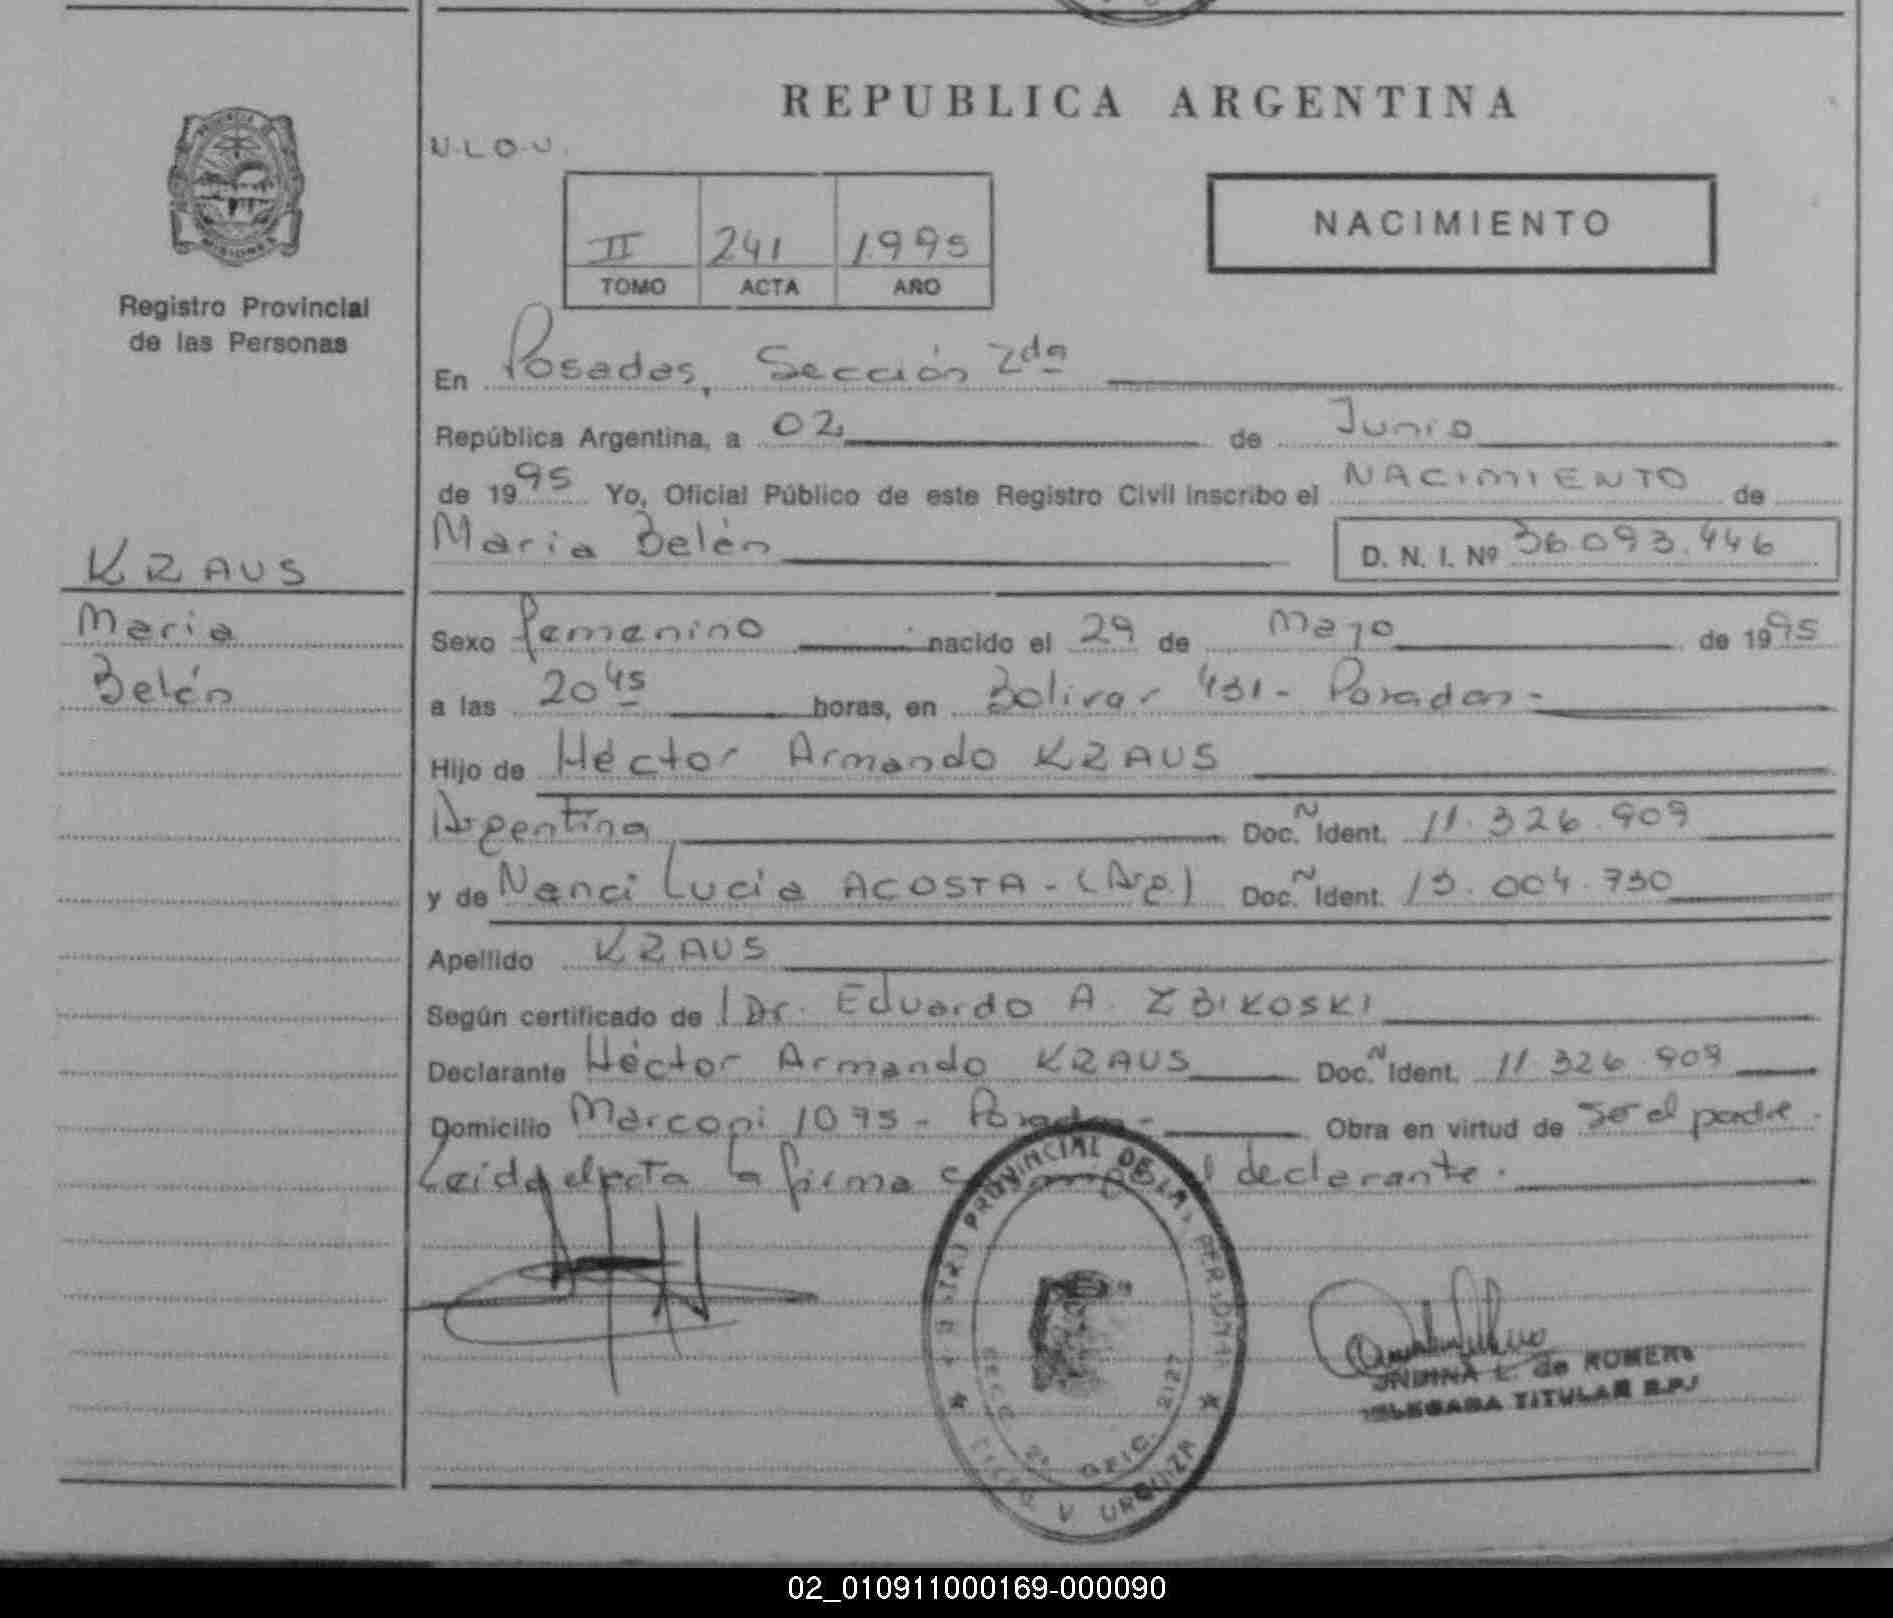 REPUBLICA ARGENTINA
N.L.O.U.
II 241 1995
TOMO ACTA AÑO
NACIMIENTO
PROVINCIA DE
MISIONES
Registro Provincial
de las Personas
En Posadas, Sección 2da
República Argentina, a 02 de Junio
de 1995 Yo, Oficial Público de este Registro Civil inscribo el NACIMIENTO de
María Belén D. N. I. Nº 36.093.446
KRAUS
María
Belén
Sexo femenino nacido el 29 de Mayo de 1995
a las 20 45 horas, en Bolivar 431 - Posadas -
Hijo de Héctor Armando KRAUS
Argentina Doc. N Ident. 11.326.909
y de Nanci Lucia ACOSTA - (Arg.) Doc. N Ident. 13.004.730
Apellido KRAUS
Según certificado de Dr. Eduardo A. ZBIKOSKI
Declarante Héctor Armando KRAUS Doc. N Ident. 11 326 909
Domicilio Marconi 1075 - Posadas - Obra en virtud de ser el padre.
Leída el acta la firma el declarante.
PROVINCIAL DE LAS PERSONAS
SECC 2ª OFIC. 2127
V URQUIZA
L. de ROMERO
DELEGADA TITULAR R.P.
02_010911000169-000090